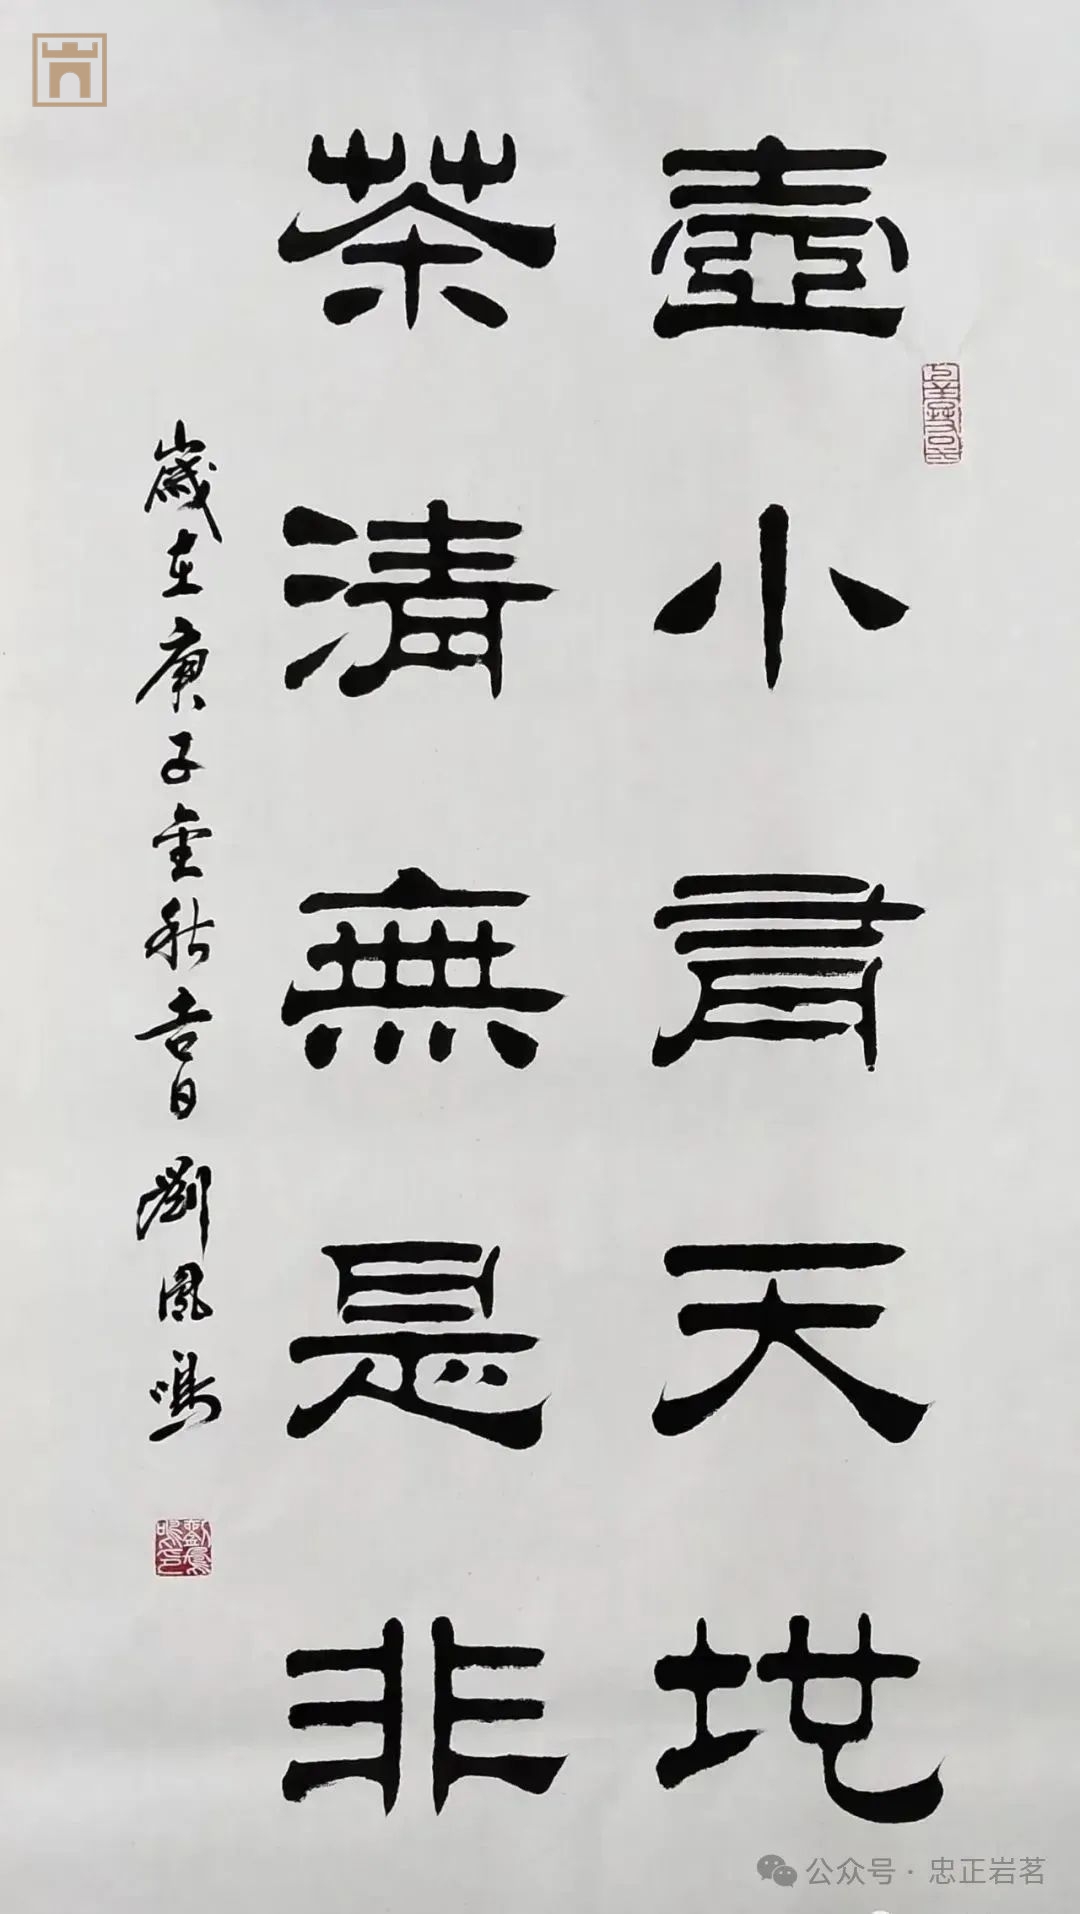 壺小有天地
茶清無是非
歲在庚子金秋吉日 劉鳳鳴
劉鳳鳴印
公众号 · 忠正岩茗